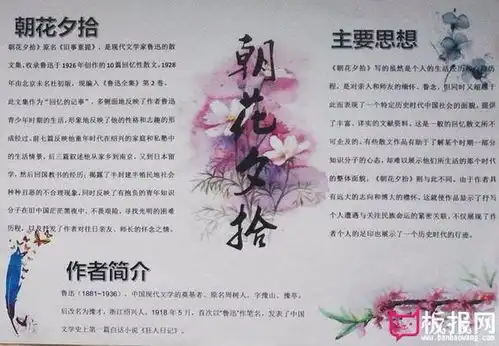 朝花夕拾
朝花夕拾》原名《旧事重提》，是现代文学家鲁迅的散
文集，收录鲁迅于1926年创作的10篇回忆性散文，1928
年由北京未名社初版，现编入《鲁迅全集》第2卷。
此文集作为“回忆的记事”，多侧面地反映了作者鲁迅
青少年时期的生活，形象地反映了他的性格和志趣的形
成经过。前七篇反映他童年时代在绍兴的家庭和私塾中
的生活情景，后三篇叙述他从家乡到南京，又到日本留
学，然后回国教书的经历；揭露了半封建半殖民地社会
种种丑恶的不合理现象，同时反映了有抱负的青年知识
分子在旧中国茫茫黑夜中，不畏艰险，寻找光明的困难
历程，以及抒发了作者对往日亲友、师长的怀念之情。
朝花夕拾
主要思想
《朝花夕拾》写的虽然是个人的生活经历和心路历
程，是对亲人和师友的缅怀、眷念，但同时又超越于
此而表现了一个特定历史时代中国社会的面貌，提供
了丰富、详实的文献资料。这是一般的回忆散文所不
可企及的。有些散文作品有助于了解某个时期一部分
知识分子的心态，却难以展示他们所生活的那个时代
的整体面貌。《朝花夕拾》则与此不同，由于作者具
有远大的志向和博大的襟怀，这就使作品显示了抒写
个人遭遇与关注民族命运的紧密关联，不仅展现了作
者个人的足印也展示了一个历史时代的行迹。
作者简介
鲁迅（1881~1936），中国现代文学的奠基者。原名周树人，字豫山、豫亭，
后改名为豫才，浙江绍兴人。1918年5月，首次以“鲁迅”作笔名，发表了中国
文学史上第一篇白话小说《狂人日记》。
板报网
www.banbaowang.com